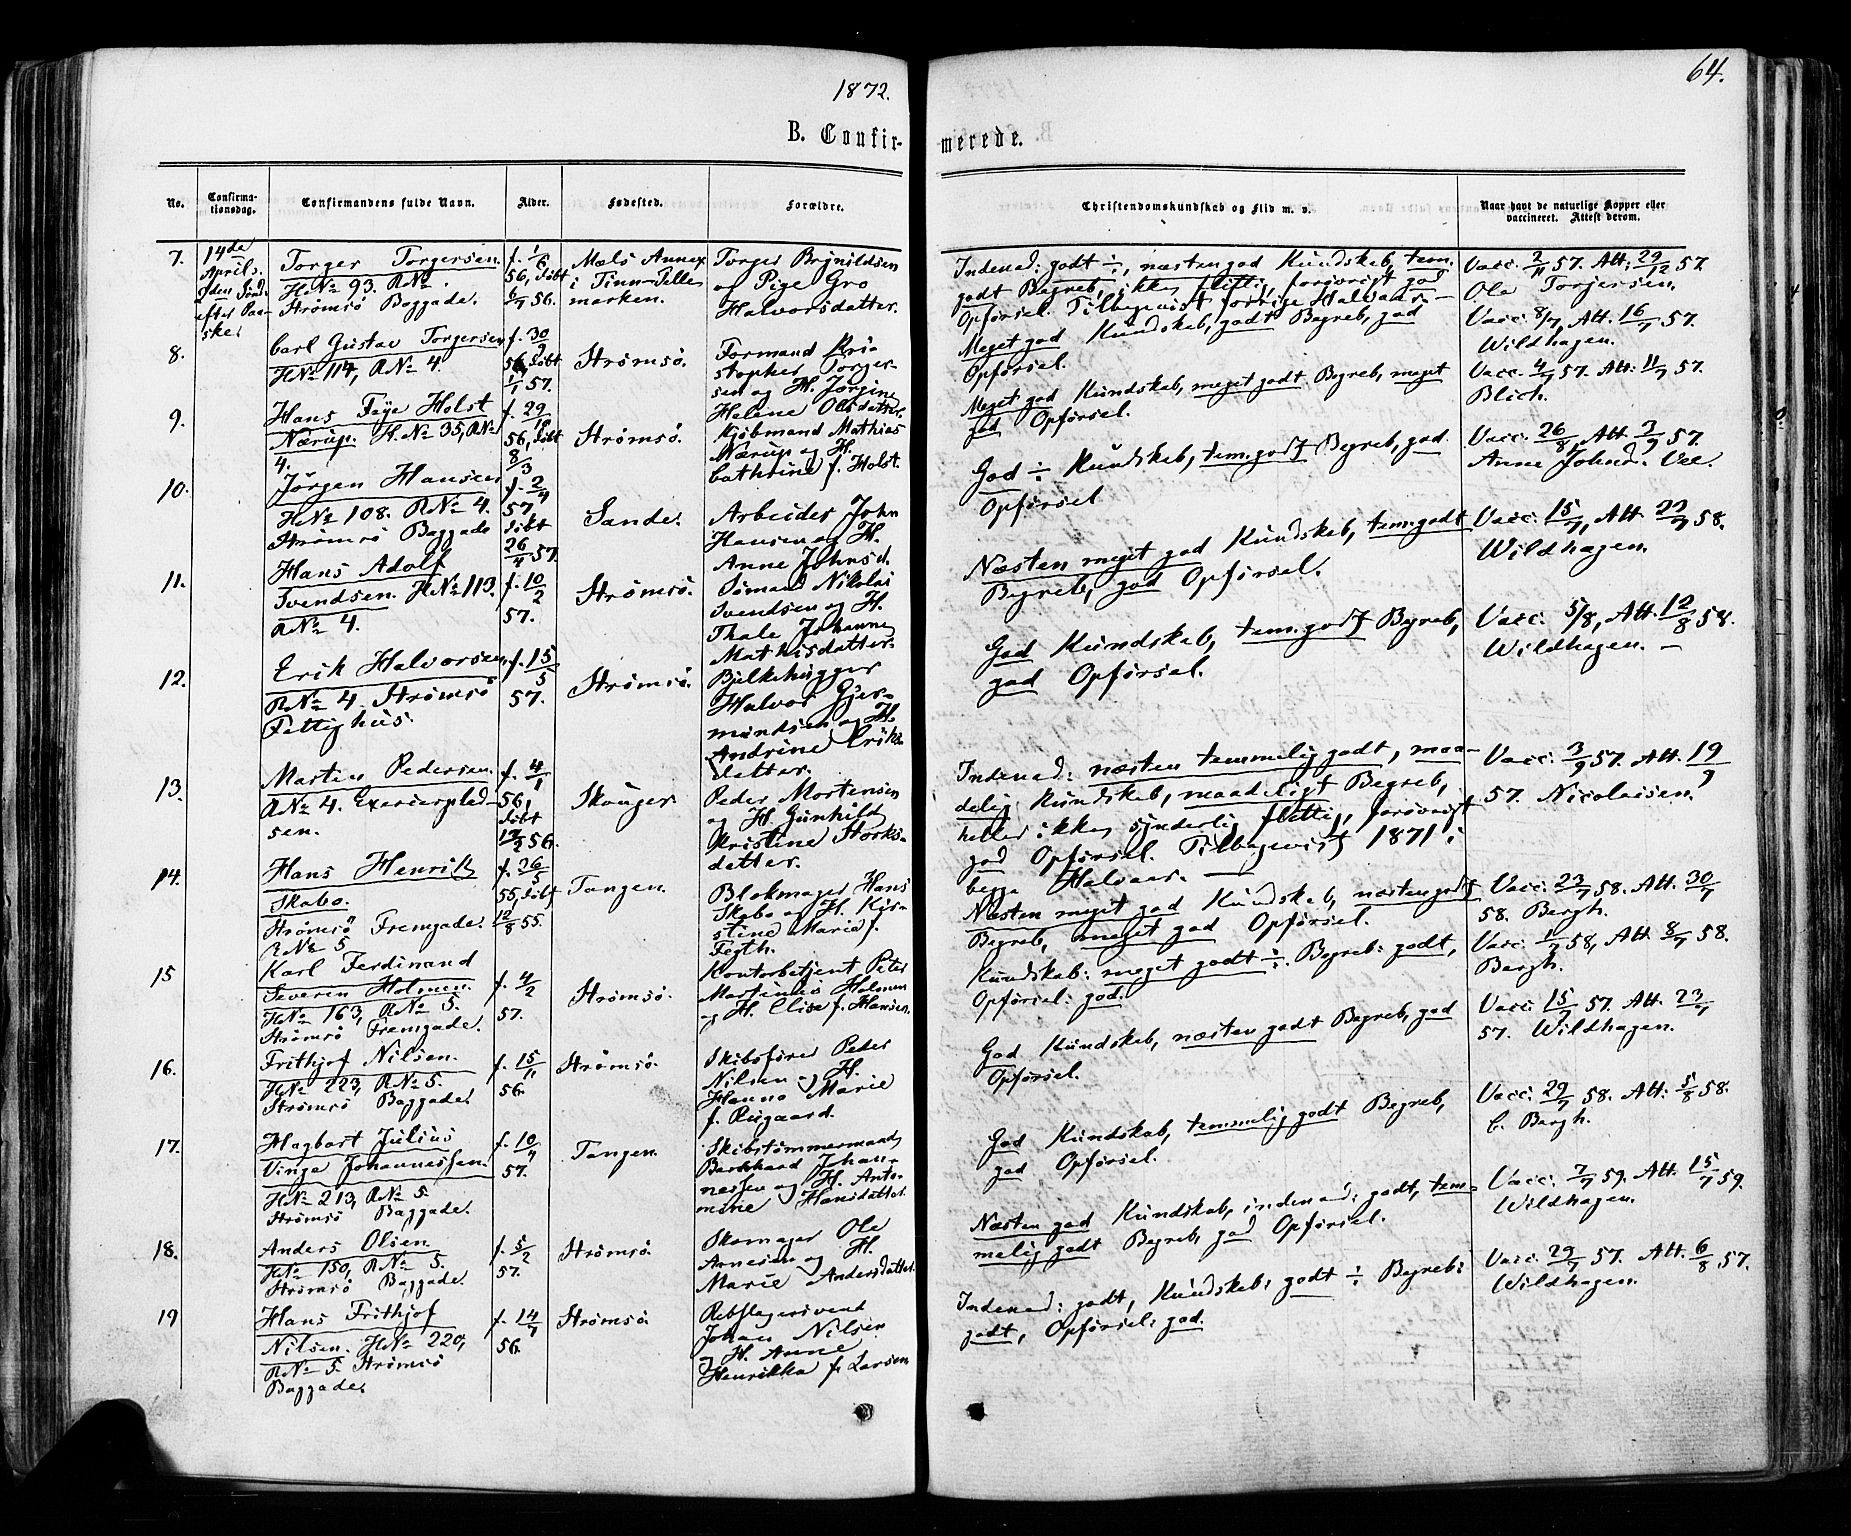 1872.
64.
B. Confir-
merede.
No.
Confirma-
tionsdag.
Confirmandens fulde Navn.
Alder.
Fødested.
Forældre.
Christendomskundskab og Flid m. v.
Naar havt de naturlige Kopper eller
vaccineret. Attest derom.
7.
14de
Aprils.
2den Sønd.
efter Paa-
ske.
Torger Torgersen.
H№ 93. R№ .
Strømsö Baggade.
f. 1/6
56, döbt
6/7 56.
Mæls Annex
i Tinn Telle
marken.
Torger Brynildsen
og Pige Gro
Halvorsdatter.
Indenad: godt ÷, næsten god Kundskab, tem.
godt Begreb, ikke flittig, forøvrigt god
Opførsel. Tilbagevist forrige Halvaar. —
Vacc. 2/11 57. Att. 29/12 57.
Ole Torjersen.
8.
Carl Gustav Torgersen
H№ 114, R№ 4.
f. 30/9
56, döbt
1/1 57.
Strømsö.
Formand Kri-
stopher Torger-
sen og H. Jørgine
Helene Olsdatter.
Meget god Kundskab, godt Begreb, god
Opførsel.
Vacc. 8/7, Att. 16/7 57.
Wildhagen.
9.
Hans Feye Holst
Nærup. H.№ 35, R№
4.
f. 29/10
56, döbt
8/3
Strømsö.
Kjöbmand Mathias
Nærup og H.
Cathrine f. Holst.
Meget god Kundskab, meget godt Begreb, meget
god Opførsel.
Vacc. 4/7 57. Att. 11/7 57.
Blich.
10.
Jörgen Hansen
H№ 108. R№ 4.
Strømsö Baggade
f. 2/4
57,
döbt
26/4 57.
Sande.
Arbeider John
Hansen og H.
Anne Johnsd.
God ÷ Kundskab, tem. godt Begreb, god
Opførsel.
Vacc. 26/8, Att. 3/9 57.
Anne Johnd. Vee.
11.
Hans Adolf
Svendsen. H№ 113.
R№ 4.
f. 10/2
57.
Strømsö.
Sömand Nikolai
Svendsen og H.
Thale Johanne
Mathisdatter.
Næsten meget god Kundskab, tem. godt
Begreb, god Opførsel.
Vacc. 15/7, Att. 23/7 58.
Wildhagen.
12.
Erik Halvorsen
R№ 4 Strømsö
Fattighus.
f. 15/5
57.
Strømsö.
Bjelkehugger
Halvor Gjer-
mundsen og H.
Andrine Eriks-
datter.
God Kundskab, tem. godt Begreb,
god Opførsel.
Vacc. 5/8, Att. 12/8 58.
Wildhagen. —
13.
Morten Pedersen.
R№ 4. Exercerplad-
sen.
f. 4/1
56,
döbt
17/2 56.
Skouger
Peder Mortensen
og H. Gunhild
Kristine Storks-
datter.
Indenad: næsten temmelig godt, maa-
delig Kundskab, maadeligt Begreb,
heller ikke synderlig flittig, forøvrigt
god Opførsel. Tilbagevist 1871 i
begge Halvaar. —
Vacc. 3/9 57. Att. 19/9
57. Nicolaisen.
14.
Hans Henrik
Skabo.
Strømsö Fremgade.
R№ 5
f. 26/5
55, döbt
12/8 55.
Tangen.
Blokmager Hans
Skabo og H. Kir-
stine Marie f.
Fegth.
Næsten meget god Kundskab, næsten godt
Begreb, meget god Opførsel.
Vacc. 23/7 58. Att. 30/7
58. Bergh.
15
Karl Ferdinand
Severin Holmen.
H№ 163, R№ 5.
Strømsö Fremgade.
f. 4/2
57.
Strømsö.
Kontorbetjent Peter
Martinius Holmen
og H. Elise f. Hansen.
Kundskab: meget godt ÷. Begreb: godt,
Opførsel: god.
Vacc. 1/7 58, Att. 8/7 58.
Bergh.
16.
Frithjof Nilsen.
H№ 223, R№ 5.
Strømsö Baggade.
f. 15/11
56.
Strømsö.
Skibsfører Peder
Nilsen og H.
Hanna Marie
f. Rugaard.
God Kundskab, næsten godt Begreb, god
Opførsel.
Vacc. 15/7 57. Att. 23/7
57. Wildhagen.
17.
Hagbart Julius
Vinge Johannessen.
H№ 213, R№ 5.
Strømsö Baggade.
f. 10/4
57.
Tangen.
Skibstømmermand
Bernhard Johan-
nessen og H. Anto-
mine Hansdatter.
God Kundskab, temmelig godt Begreb,
god Opførsel.
Vacc. 29/7 58. Att. 5/8 58.
C. Bergh.
18.
Anders Olsen
H№ 150, R№ 5.
Strømsö Baggade.
f. 5/2
57.
Strømsö.
Skomager Ole
Arnesen og H.
Marie Andersdatter.
Næsten god Kundskab, indenad: godt, tem-
melig godt Begreb, god Opførsel.
Vacc. 7/7 59. Att. 15/7 59.
Wildhagen.
19
Hans Frithjof
Nilsen. H№ 220,
R№ 5. Strømsö
Baggade.
f. 14/7
56.
Strømsö.
Rebslagersvend
Johan Nilsen
og H. Anne
Henrikka f. Larsen
Indenad: godt, Kundskab: godt ÷ Begreb:
godt, Opførsel: god.
Vacc. 29/7 57. Att. 6/8 57.
Wildhagen.